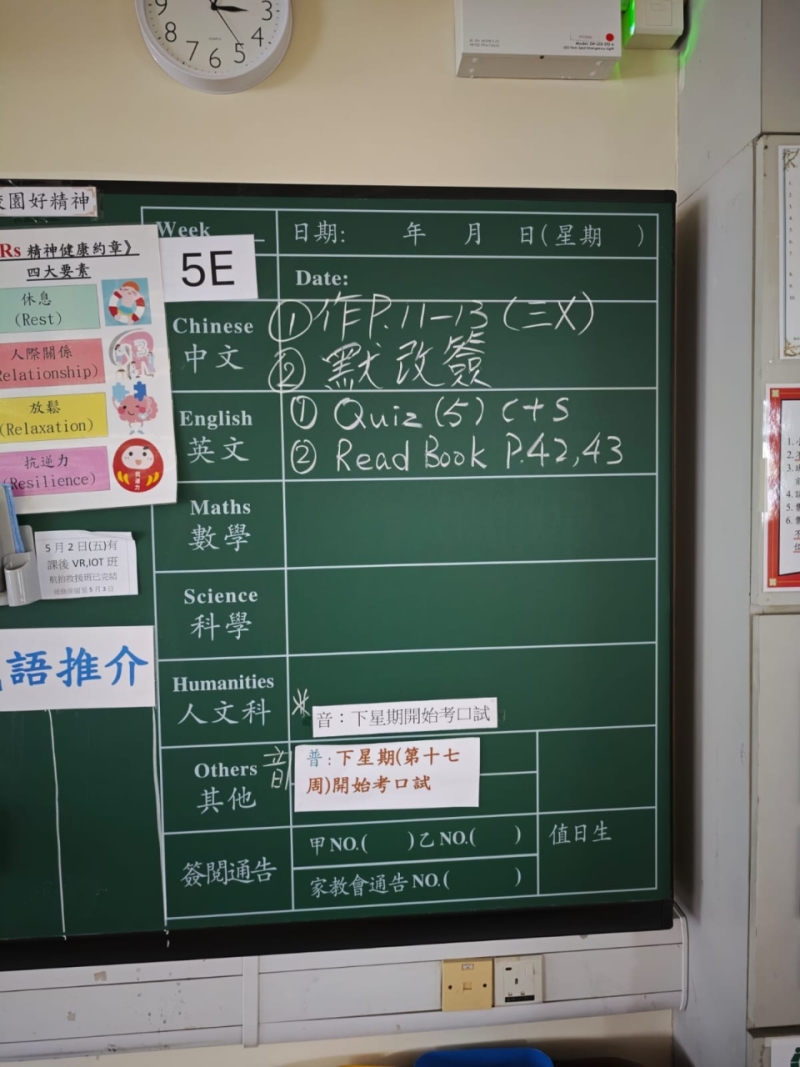 3
4
5
6
7
8
園好精神
Rs 精神健康約章》
四大要素
休息
(Rest)
人際關係
Relationship)
放鬆
(Relaxation)
抗逆力
(Resilience)
5月2日(五)有
課後 VR,IOT 班
語推介
Week
5E
日期: 年 月 日(星期 )
Date:
Chinese
中文
①作P.11-13(三X)
②默改簽
English
英文
① Quiz (5) C+S
② Read Book P.42,43
Maths
數學
Science
科學
Humanities
人文科
音：下星期開始考口試
Others
其他
音
普:下星期(第十七
周)開始考口試
簽閱通告
甲NO.( )乙NO.( )
家教會通告NO.( )
值日生